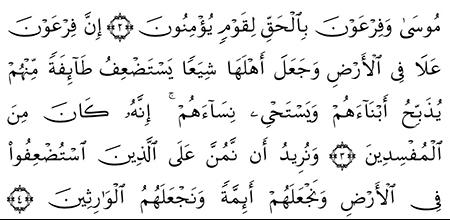 مُوسَىٰ وَفِرْعَوْنَ بِٱلْحَقِّ لِقَوْمٍ يُؤْمِنُونَ ٣ إِنَّ فِرْعَوْنَ
عَلَا فِى ٱلْأَرْضِ وَجَعَلَ أَهْلَهَا شِيَعًا يَسْتَضْعِفُ طَآئِفَةً مِّنْهُمْ
يُذَبِّحُ أَبْنَآءَهُمْ وَيَسْتَحْىِۦ نِسَآءَهُمْ ۚ إِنَّهُۥ كَانَ مِنَ
ٱلْمُفْسِدِينَ ٣ وَنُرِيدُ أَن نَّمُنَّ عَلَى ٱلَّذِينَ ٱسْتُضْعِفُوا۟
فِى ٱلْأَرْضِ وَنَجْعَلَهُمْ أَئِمَّةً وَنَجْعَلَهُمُ ٱلْوَٰرِثِينَ ٤